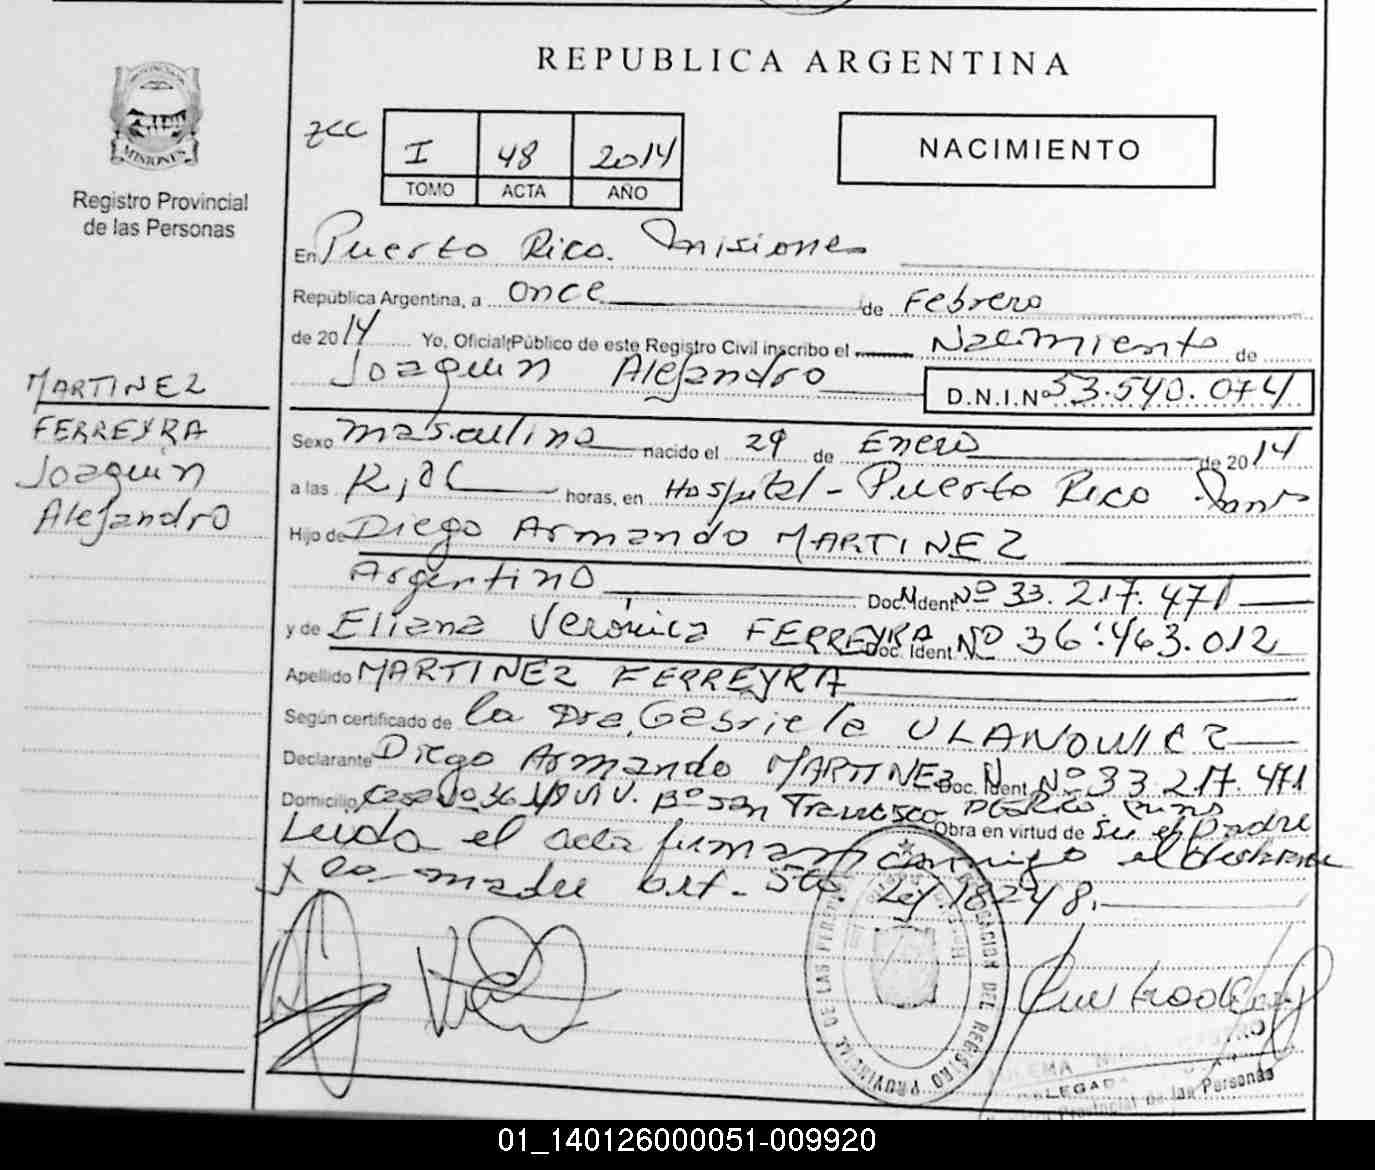 REPUBLICA ARGENTINA
PROVINCIA DE
MISIONES
Registro Provincial
de las Personas
I 48 2014
TOMO ACTA AÑO
NACIMIENTO
En Puerto Rico. Misiones
República Argentina, a once de Febrero
de 2014 Yo, Oficial Público de este Registro Civil inscribo el Nacimiento de
Joaquin Alejandro D.N.I.Nº 53.540.074
MARTINEZ
FERREYRA
Joaquin
Alejandro
Sexo masculino nacido el 29 de Enero de 2014
a las horas, en Hospital - Puerto Rico
Hijo de Diego Armando MARTINEZ
Argentino Doc. Ident. Nº 33.217.471
y de Eliana Verónica FERREYRA Doc. Ident Nº 36.463.012
Apellido MARTINEZ FERREYRA
Según certificado de la Dra. Gabriela ULANOWICZ
Declarante Diego Armando MARTINEZ Doc. Ident. Nº 33.217.471
Domicilio Casa Nº 36 Bº San Francisco Pto Rico Mnes
Obra en virtud de Ser el Padre
Leida el acta firman conmigo el declarante
y la madre Ley 18248.
REGISTRO PROVINCIAL DE LAS PERSONAS
DELEGADA
Registro Provincial de las Personas
01_140126000051-009920